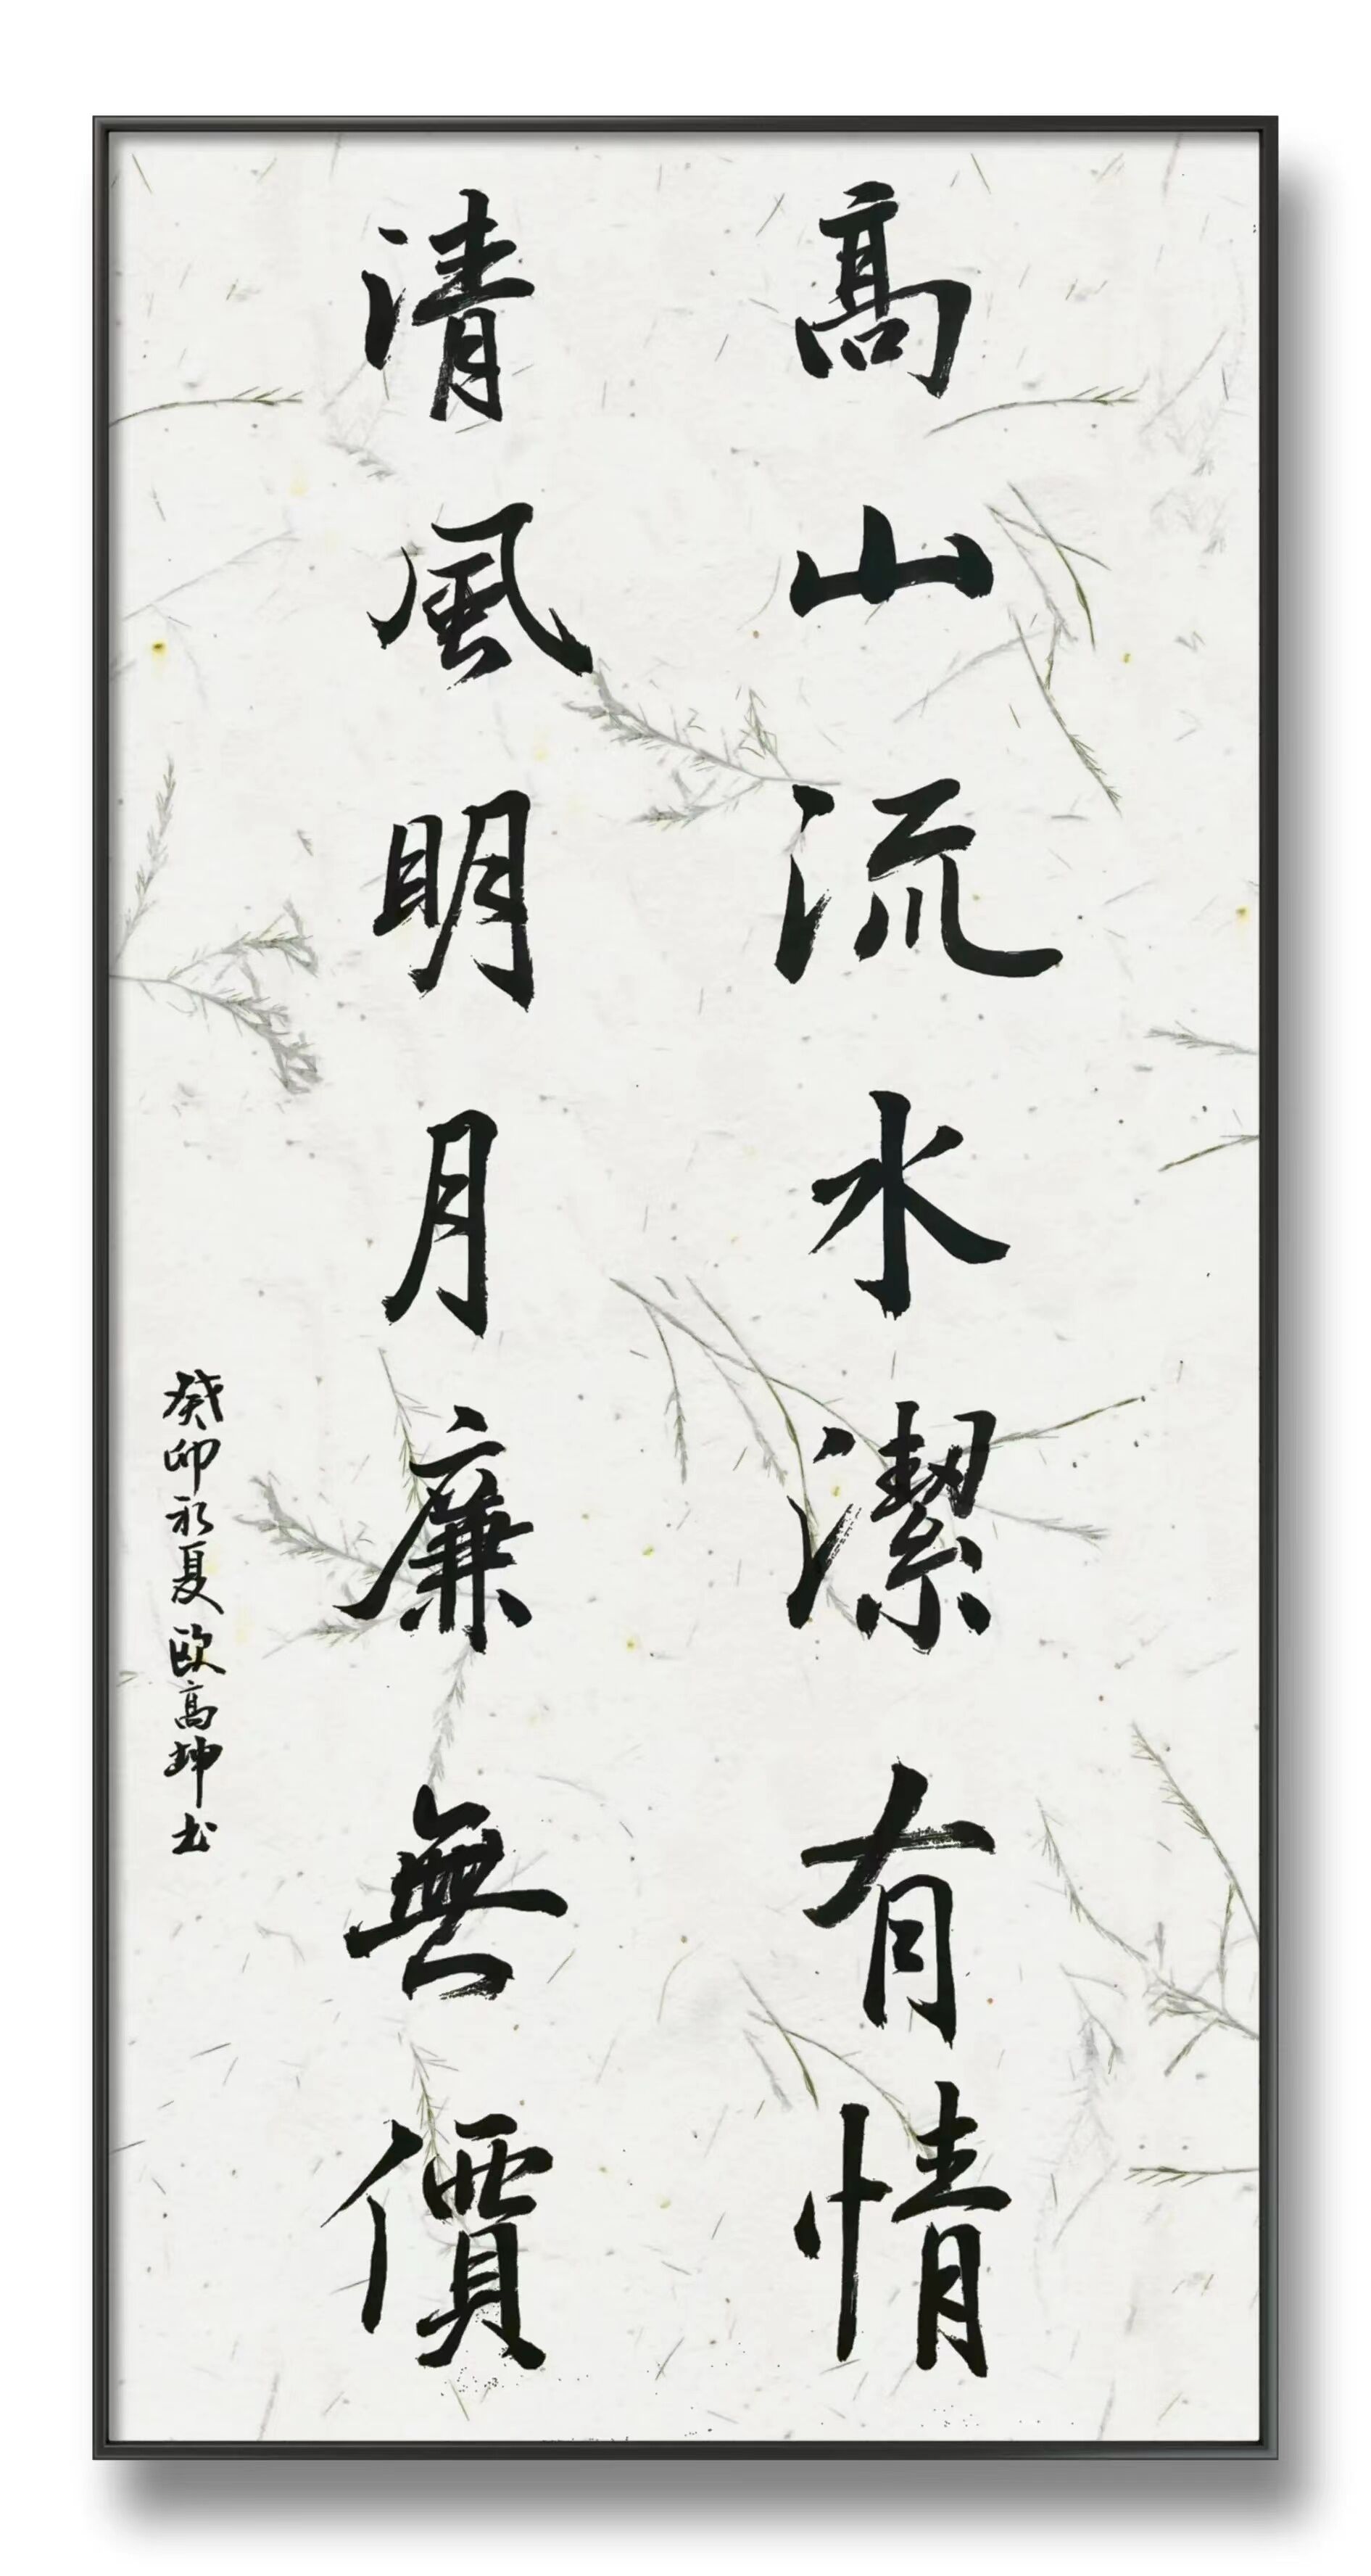 高山流水潔有情
清風明月廉無價
癸卯初夏欧高坤书